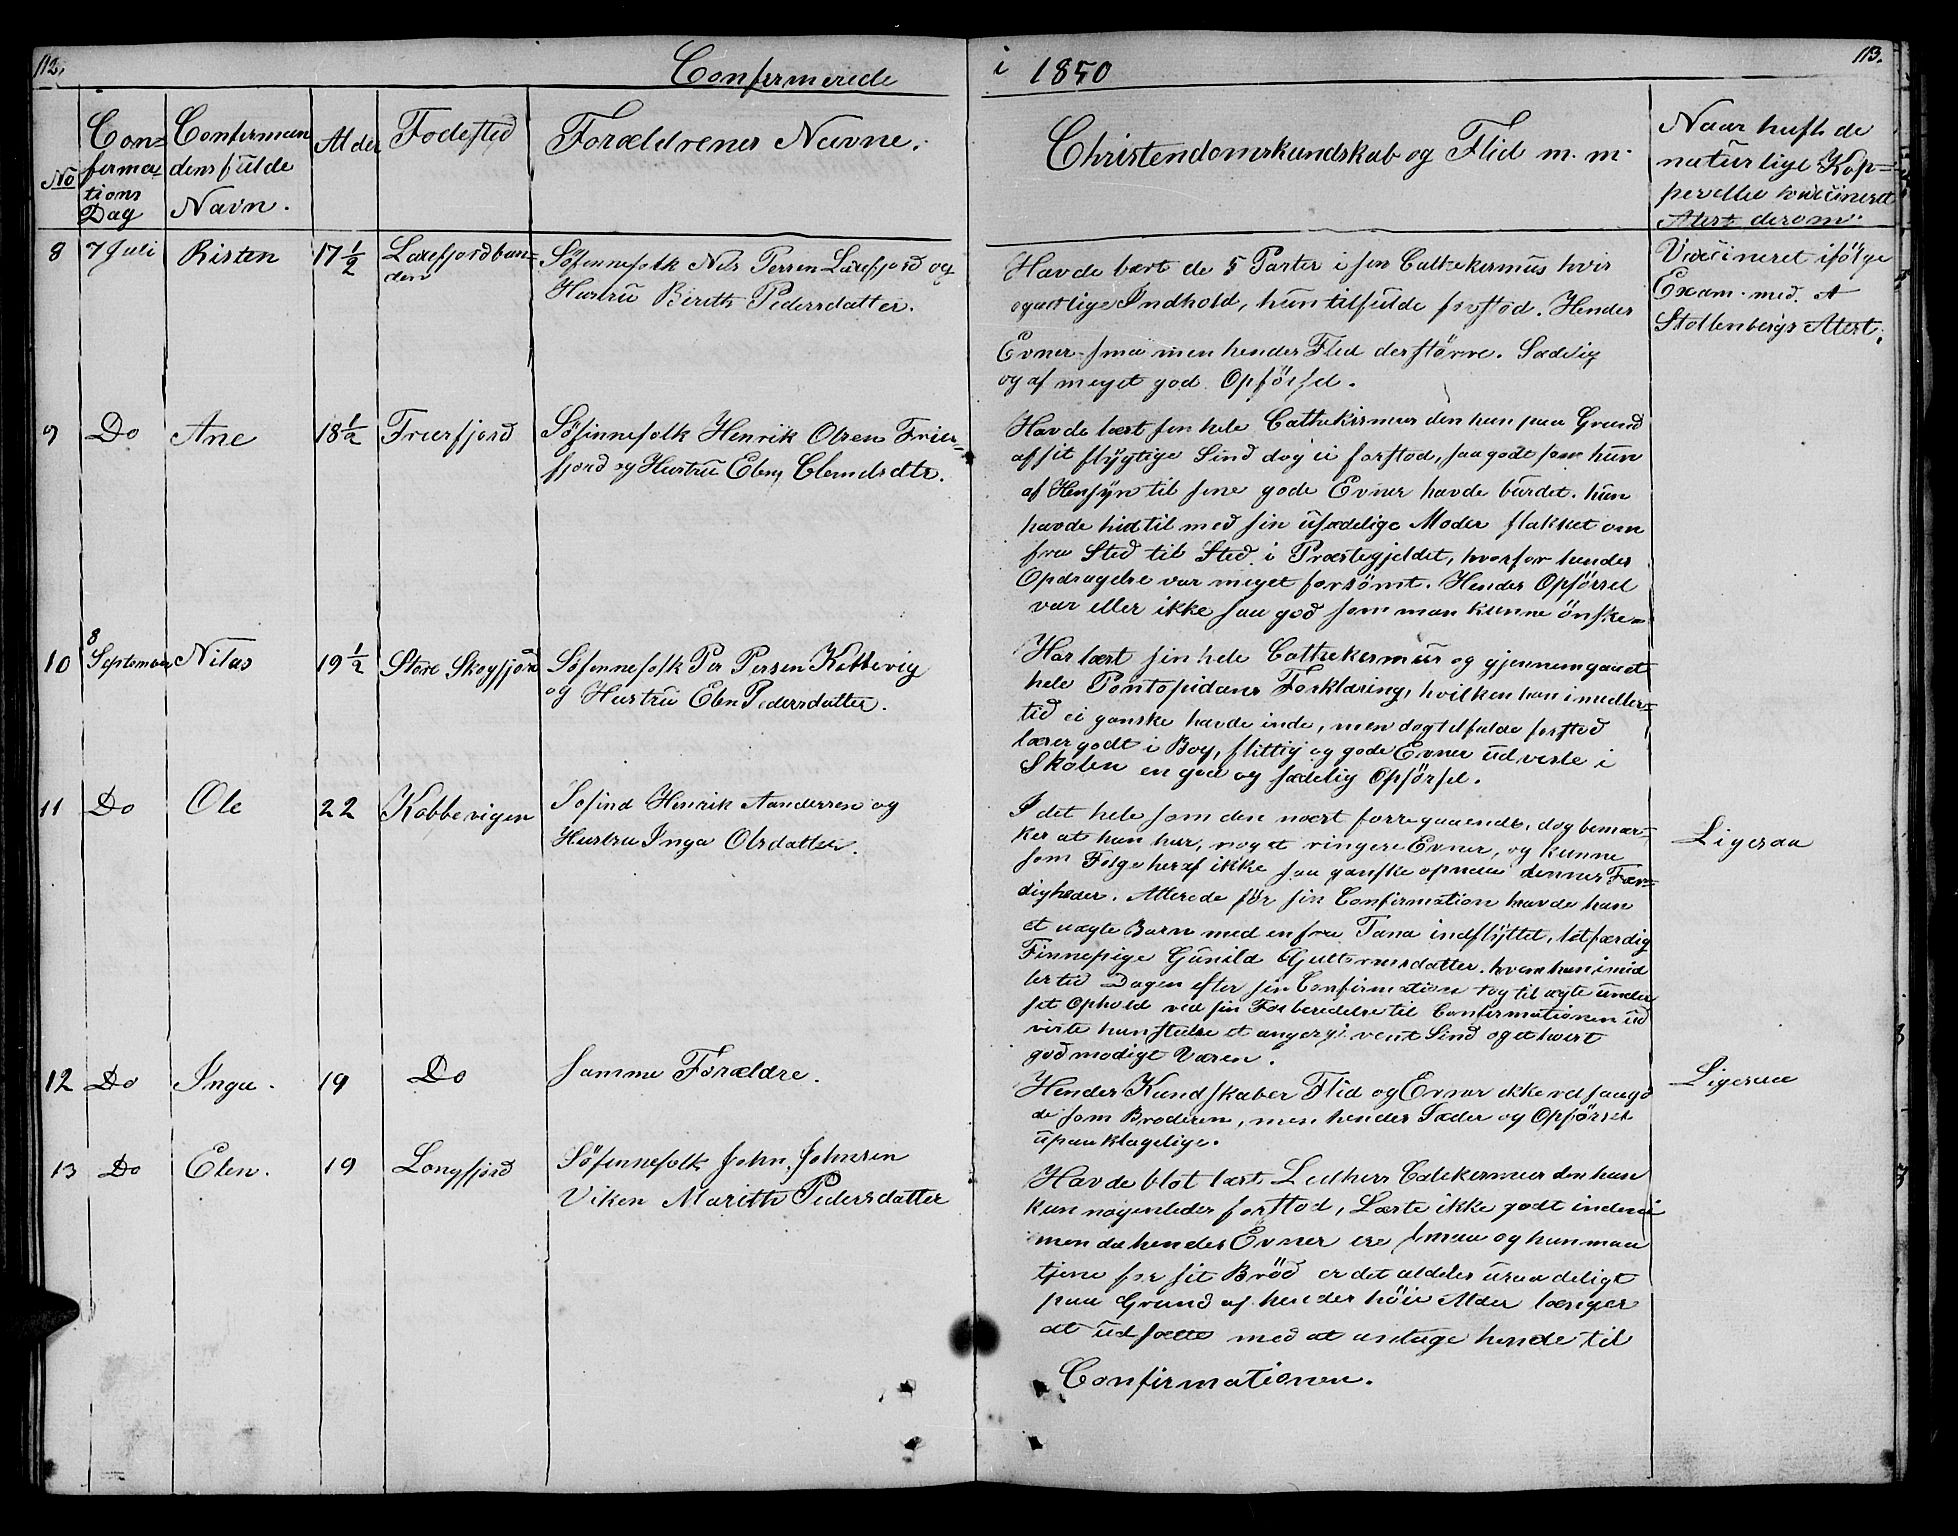 112.
Confermerede
i 1850
113.
No
Con=
ferma
tions
Dag
Conferman
dens fulde
Navn.
Alder
Fodested
Forældrenes Navne.
Christendomskundskab og Flid m. m.
Naar havt de
naturlige Kop=
per eller vaccineret
Atest derom.
8
7 Juli
Risten
17 1/2
Laxefjordbun=
den
Søfinnefolk Nils Persen Laxefjord og
Hustru Bereth Pedersdatter.
Havde lært de 5 Parter i sin Cathekismus hvis
ogentlige Indhold, hun tilfulde forstod. Hendes
Evner smaa men hendes Flid der större. Sædelig
og af meget god Opförsel.
Vaccineret ifölge
Exam. med. A
Stoltenbergs Atest.
9
Do
Ane
18 1/2
Trierfjord
Söfinnefolk Henrik Olsen Trier=
fjord og Hustru Elen Clemetsdtr.
Havde lært sin hele Cathekismus den hun paa Grund
af sit flygtige Sind dog ei forstod, saa godt som hun
af Hensyn til sine gode Evner havde burdet. hun
havde hidtil med sin usædelige Moder flakket om
fra Sted til Sted i Præstegjeldet, hvorfor hendes
Opdragelse var meget forsömt. Hendes Opförsel
var eller ikke saa god som man kunne önske=
10
8
September
Nilas
19 1/2
Store Skogfjord
Söfinnefolk Per Persen Kobbevig
og Hustru Elen Pedersdatter.
Har lært sin hele Cathekismus og gjennemgaaet
hele Pontopidans Forklaring, hvilken han imidler=
tid ei ganske havde inde, men dog tilfulde forstod
læser godt i Bog, flittig og gode Evner udviste i
Skolen en god og sædelig Opförsel.
11
Do
Ole
22
Kobbevigen
Søfind Henrik Aandersen og
Hustru Inga Olsdatter.
I det hele som den næst forregaaende, dog bemær=
kes at han har noget ringere Evner, og kunne
som Følge heraf ikke saa ganske opnaa dennes Fær=
digheder. Allerede för sin Confirmation havde han
et uægte Barn med en fra Tana indflyttet, letfærdig
Finnepige Gunild Guttormsdatter. hvem han imid
lertid Dagen efter sin Confirmation tog til ægte under
sit Ophold ved sin Forberedelse til Confirmationen ud
viste han stedse et angergivent Sind og ethvert
godmodigt Væsen.
Ligesaa
12
Do
Inga.
19
Do
Samme Forældre.
Hendes Kundskaber Flid og Evner ikke vel saa go
de som Broderens, men hendes Sæder og Opförsel
upaaklagelige.
Ligesaa
13
Do
Elen.
19
Langfjord
Söfinnefolk John Johnsen
Viken Marith Pedersdatter
Havde blot lært Luthers Catekismus den hun
kun nogenledes forstod, Læste ikke godt inden i
men da hendes Evner ere smaa og hun maa
tjene for sit Bröd er det aldeles uraadeligt
paa Grund af hendes höie Alder længer
at udsætte med at antage hende til
Confirmationen.